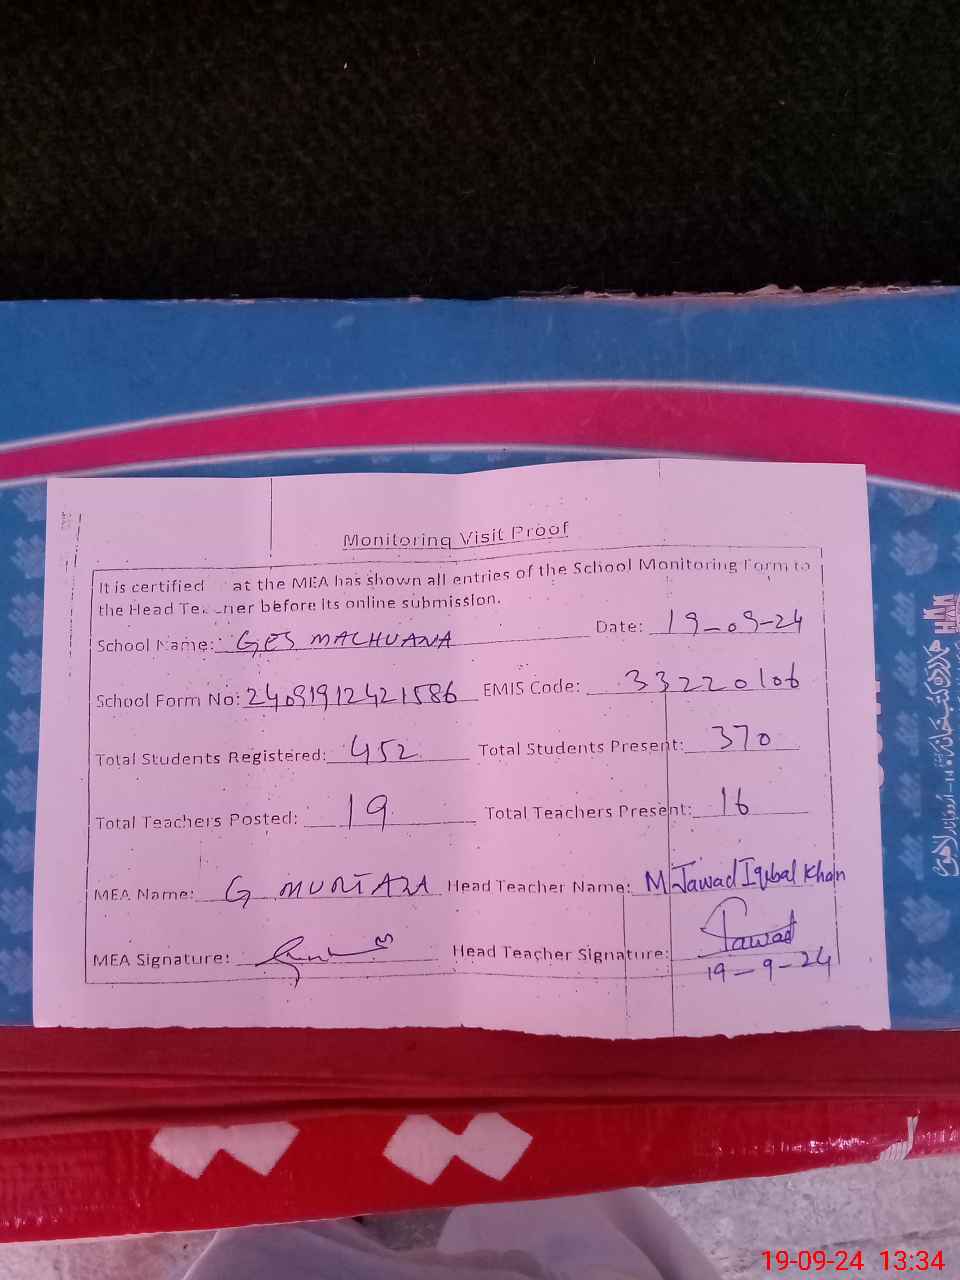 Monitoring Visit Proof
It is certified at the MEA has shown all entries of the School Monitoring Form to
the Head Te. cher before its online submission.
School Name: GES MACHUANA Date: 19-09-24
School Form No: 24091912421586 EMIS Code: 33220106
Total Students Registered: 452 Total Students Present: 370
Total Teachers Posted: 19 Total Teachers Present: 16
MEA Name: G MURTAZA Head Teacher Name: M Jawad Iqbal Khan
MEA Signature: Head Teacher Signature: Jawad
19-9-24
19-09-24 13:34